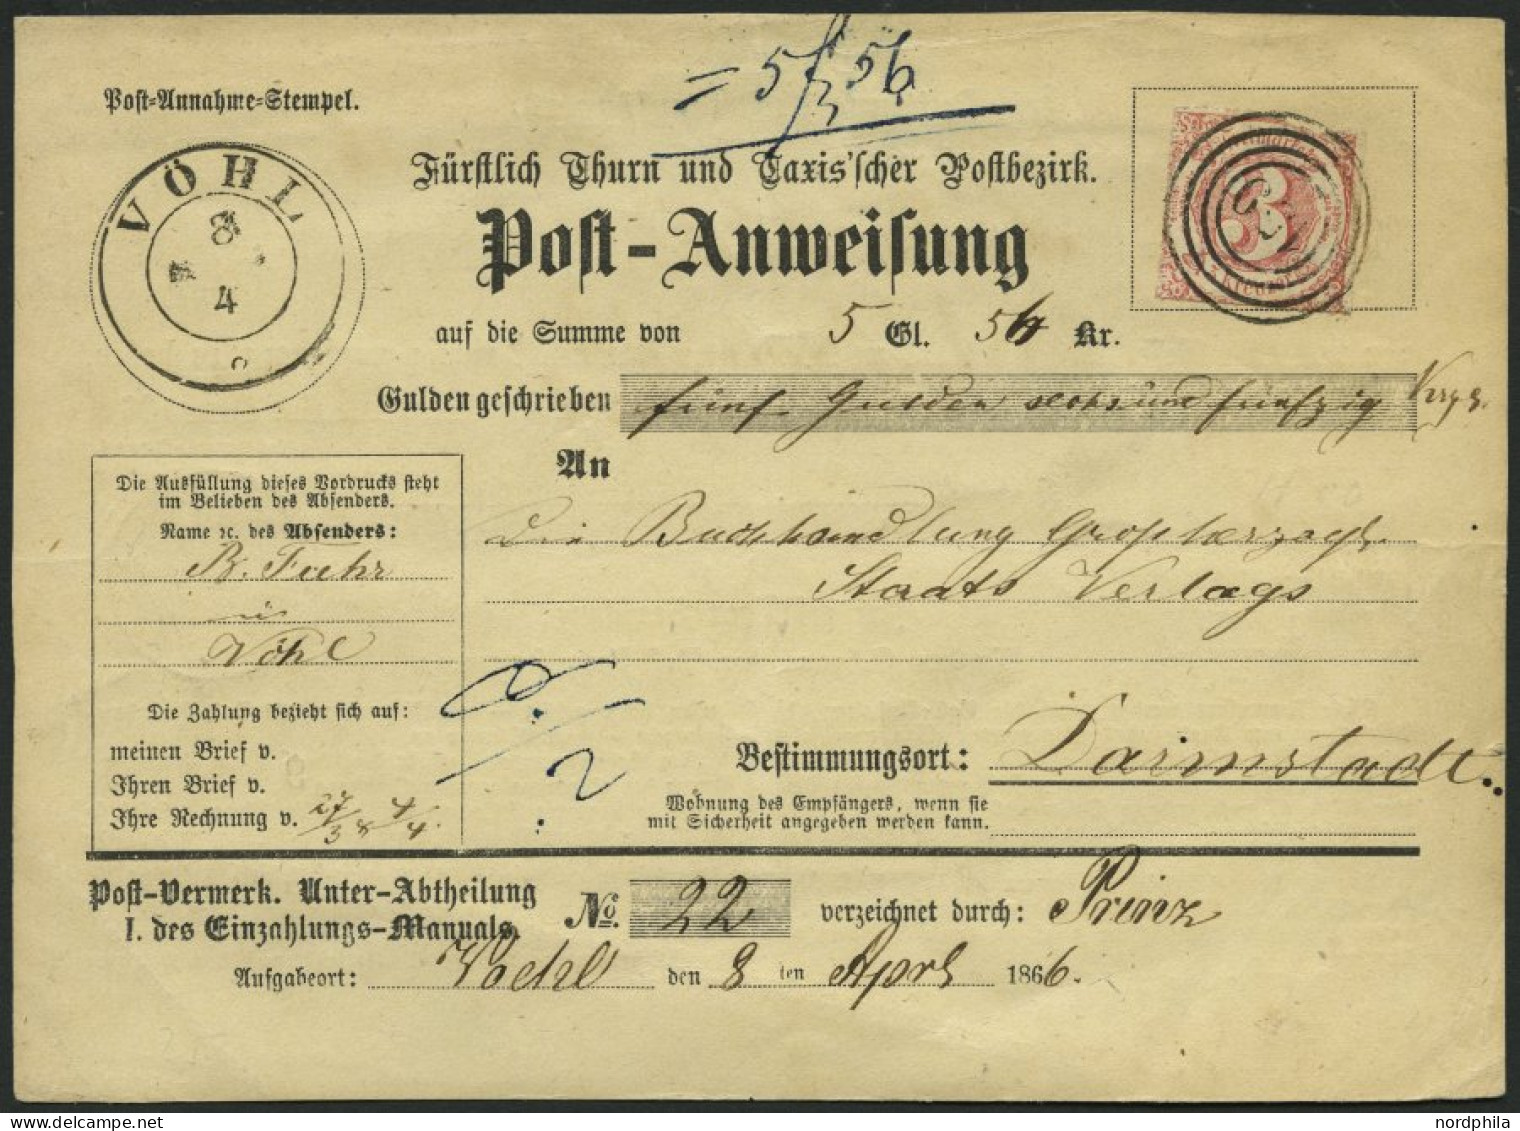 = 5 f 56
Post-Annahme-Stempel.
VÖHL
8
4
Fürstlich Thurn und Taxis'scher Postbezirk.
Post-Anweisung
3
auf die Summe von 5 Gl. 56 Kr.
Gulden geschrieben fünf Gulden sechs und fünfzig
An
Die Ausfüllung dieses Vordrucks steht
im Belieben des Absenders.
Name ꝛc. des Absenders:
B. Fuhr
in
Vöhl
Die Buchhandlung Großherzogl.
Staats Verlags
Die Zahlung bezieht sich auf:
meinen Brief v.
Ihren Brief v.
Ihre Rechnung v. 27/3 & 4/4.
Bestimmungsort: Darmstadt
Wohnung des Empfängers, wenn sie
mit Sicherheit angegeben werden kann.
Post-Vermerk. Unter-Abtheilung
I. des Einzahlungs-Manuals.
No. 22 verzeichnet durch: Prinz
Aufgabeort: Voehl den 8 ten April 1866.
nordphila